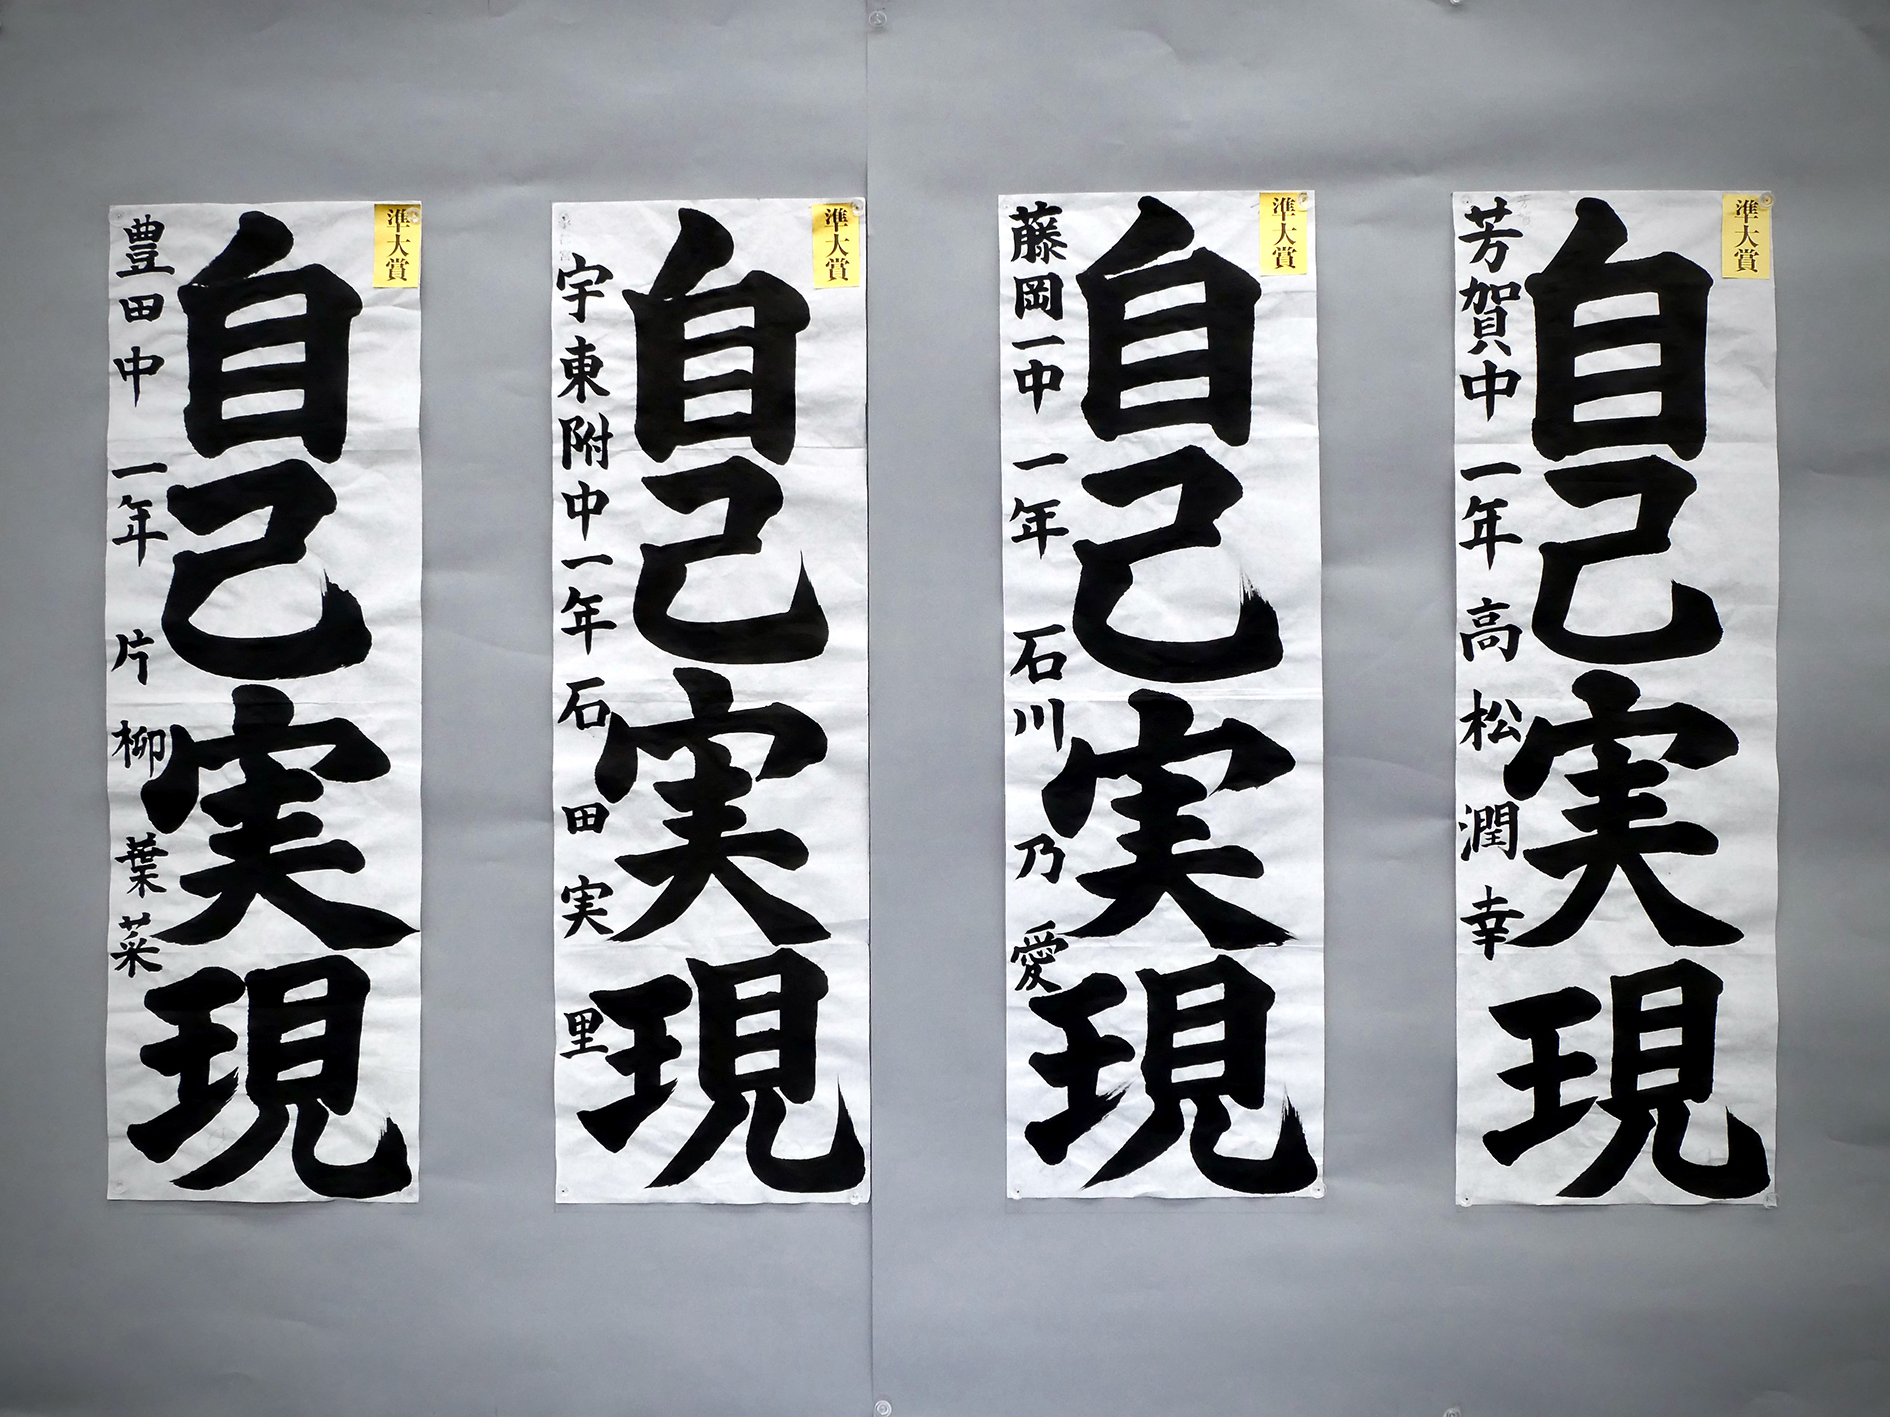 準大賞
自己実現
芳賀中 一年 高松潤幸
準大賞
自己実現
藤岡一中 一年 石川乃愛
準大賞
自己実現
宇東附中一年 石田実里
準大賞
自己実現
豊田中 一年 片柳葉菜